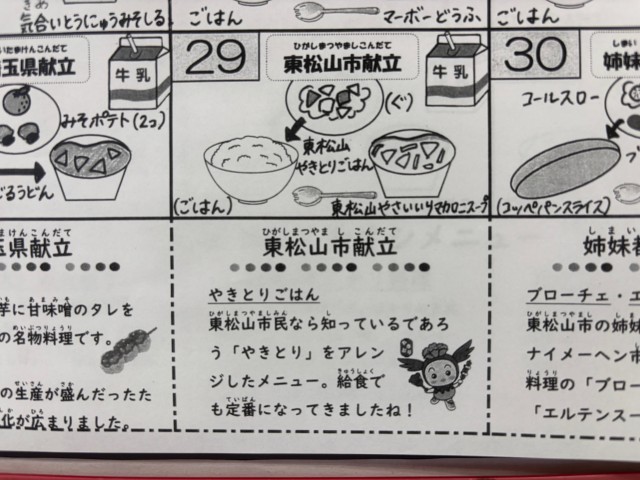 気合いとうにゅうみそしる
ごはん
マーボーどうふ
ごはん
いたまけんこんだて
玉県献立
牛乳
みそポテト(2コ)
29
ひがしまつやましこんだて
東松山市献立
牛乳
(ぐ)
東松山
やきとりごはん
(ごはん)
東松山やさいいりマカロニスープ
30
しまい
姉妹
コールスロー
(コッペパンスライス)
まけんこんだて
玉県献立
芋に甘味噌のタレを
の名物料理です。
の生産が盛んだったた
化が広まりました。
ひがしまつやましこんだて
東松山市献立
やきとりごはん
東松山市民なら知っているであろ
う「やきとり」をアレン
ジしたメニュー。給食で
も定番になってきましたね！
しまい
姉妹都
ブローチェ・エ
東松山市の姉妹
ナイメーヘン市
料理の「ブロー
「エルテンスー